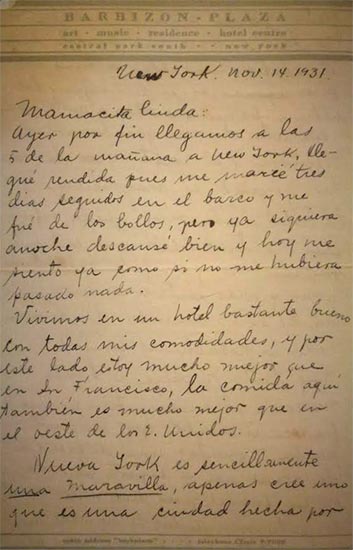 BARBIZON-PLAZA
art - music - residence - hotel centre
central park south - new york
New York. Nov. 14 1931.
Mamacita linda:
Ayer por fin llegamos a las
5 de la mañana a New York, lle-
gué rendida pues me marié tres
dias seguidos en el barco y me
fué de los bollos, pero ya siquiera
anoche descansé bien y hoy me
siento ya como si no me hubiera
pasado nada.
Vivimos en un hotel bastante bueno
con todas mis comodidades, y por
este lado estoy mucho mejor que
en Sn Francisco, la comida aquí
también es mucho mejor que en
el oeste de los E. Unidos.
Nueva York es sencillamente
una maravilla, apenas cree uno
que es una ciudad hecha por